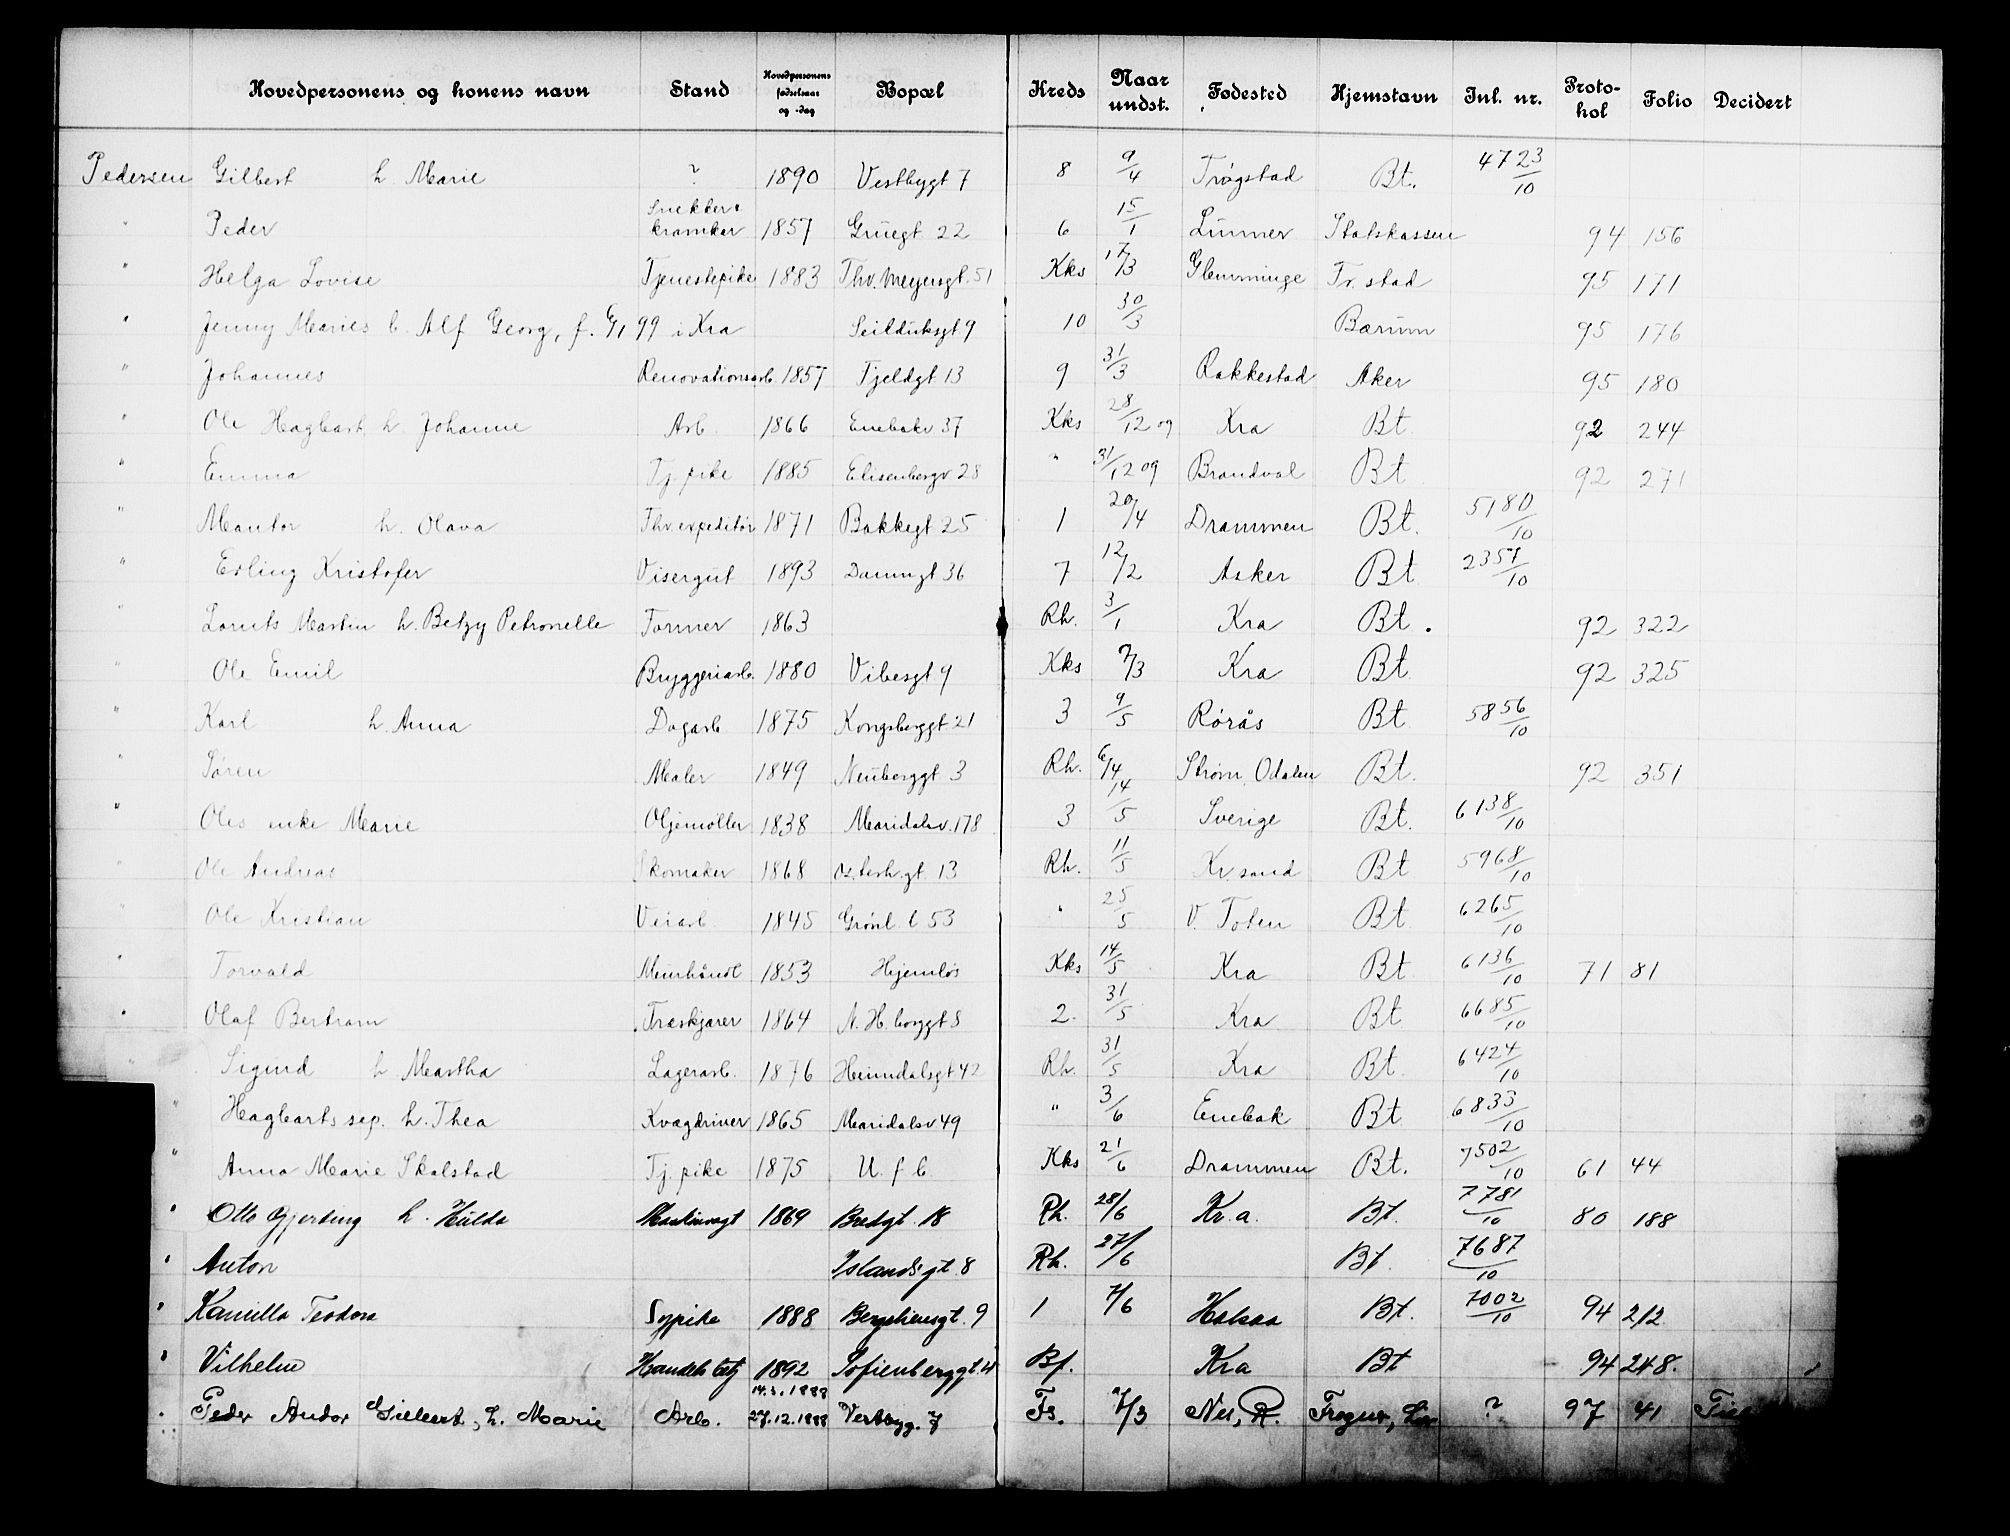 Hovedpersonens og konens navn Stand Hovedpersonens fødselsaar og -dag Bopæl Kreds Naar undst. Fødested Hjemstavn Inl. nr. Proto-kol Folio Decidert
Pedersen Gilbert h. Marie ? 1890 Vestbygt 7 8 9/4 Trøgstad Bt. 4723/10
" Peder Snekker kramkar 1857 Grüegt 22 6 15/1 Lunner Statskassen 94 156
" Helga Lovise Tjenestepike 1883 Thv. Meyersgt. 51 Kks 17/3 Glemminge Fr. stad 95 171
" Jenny Maries b. Alf Georg, f. 6/1 99 i Kra Seilduksgt 9 10 30/3 Bærum 95 176
" Johannes Renovationsarb. 1857 Fjeldgt 13 9 31/3 Rakkestad Aker 95 180
" Ole Hagbart h. Johanne Arb. 1866 Enebakv 37 Kks 28/12 09 Kra Bt 92 244
" Emma Tj. pike 1885 Elisenbergv 28 " 31/12 09 Brandval Bt 92 271
" Mantor h. Olava Thv. expeditør 1871 Bakkegt 25 1 20/4 Drammen Bt. 5180/10
" Erling Kristofer Visergut 1893 Damngt 36 7 12/2 Asker Bt 2357/10
" Lorents Martin h. Betzy Petronelle Former 1863 Rh. 3/1 Kra Bt. 92 322
" Ole Emil Bryggeriarb. 1880 Vibesgt 9 Kks 7/3 Kra Bt 92 325
" Karl h. Anna Dagarb 1875 Kongsberggt 21 3 9/5 Rørås Bt 5856/10
" Søren Maler 1849 Neuberggt 3 Rh. 6/4 Strøm, Odalen Bt. 92 351
" Oles enke Marie Oljemøller 1838 Maridalsv. 178 3 14/5 Sverige Bt. 6138/10
" Ole Andreas Skomaker 1868 Osterh.gt. 13 Rh. 11/5 Kr. sand Bt 5968/10
" Ole Kristian Veiarb. 1845 Grønl. 6 53 " 25/5 V. Toten Bt 6265/10
" Torvald Murhåndl 1853 Hjemløs Kks 14/5 Kra Bt 6136/10 71 81
" Olaf Bertram Træskjærer 1864 N. H. borggt 8 2. 31/5 Kra Bt 6685/10
" Sigurd h. Martha Lagerarb. 1876 Heimdalsgt 42 Rh. 31/5 Kra Bt. 6424/10
" Hagbarts sep. h. Thea Kvægdriver 1865 Maridalsv 49 " 3/6 Enebak Bt 6833/10
" Anna Marie Skalstad Tj. pike 1875 U. f b. Kks 21/6 Drammen Bt. 7502/10 61 44
" Otto Gjerding h. Hulda Maskinvagt 1869 Bredgt. 18 Rh. 28/6 Kr.a. Bt. 7781/10 80 188
" Anton Islandsgt. 8 Rh. 27/6 Bt. 7687/10
" Kamilla Teodora Sypike 1888 Bergsliensgt. 9 1 7/6 Halsaa Bt. 7002/10 94 212
" Vilhelm Handelsbetj 1892 Sofienberggt. 4 Bf. Kra Bt 94 248.
14.3.1888
" Peder Andor Gilbert, h. Marie Arb. 27.12.1888 Vestbyg. 7 Fs. 7/3 Nes, R. Frogner, ? 97 41